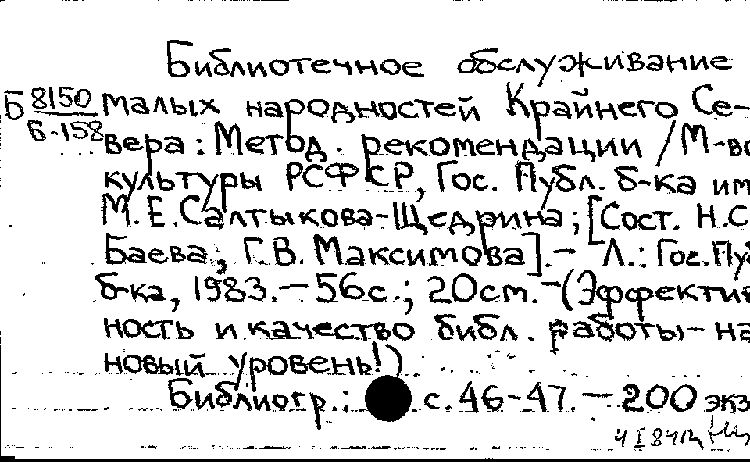 Библиотечное обслуживание
Б 8150/Б-158 малых народностей Крайнего Се-
вера: Метод. рекомендации / М-во
культуры РСФСР, Гос. Публ. б-ка им
М.Е.Салтыкова-Щедрина; [Сост. Н.С
Баева, Г.В. Максимова]. - Л.: Гос.Пуб
б-ка, 1983. - 56с.; 20см. - (Эффектив
ность и качество библ. работы - на
новый уровень!)
Библиогр.: с. 46-47. - 200 экз